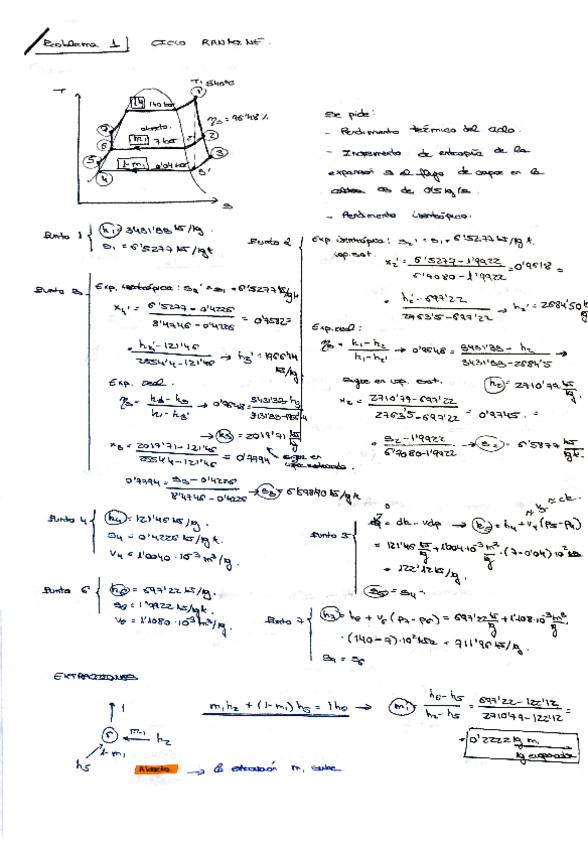 Problema 1 CICLO RANKINE.
T
T₁ 540ºC
1
14 140 bar
ηs = 96'48 %
abierto
m₁ 7 bar
1-m₁ 0'04 bar
7
6
5
4
2
3
3'
s
Se pide:
- Rendimiento térmico del ciclo.
- Incremento de entropía de la
expansión si el flujo de vapor en la
caldera es de 0'5 kg/s.
- Rendimiento isentrópico.
Punto 1 { h₁ = 3431'33 kJ/kg.
s₁ = 6'5277 kJ/kgK
Punto 2
Exp. isentrópica: s₂' = s₁ = 6'5277 kJ/kg K.
vap. sat.
x₂' = (6'5277 - 1'9922)/(6'7080 - 1'9922) = 0'9618 =
= (h₂' - 697'22)/(2763'5 - 697'22) → h₂' = 2684'50 kJ/kg
Exp. real:
ηs = (h₁ - h₂)/(h₁ - h₂') → 0'9648 = (3431'33 - h₂)/(3431'33 - 2684'5)
sigue en vap. sat. h₂ = 2710'79 kJ/kg
x₂ = (2710'79 - 697'22)/(2763'5 - 697'22) = 0'9745 =
= (s₂ - 1'9922)/(6'7080 - 1'9922) → s₂ = 6'5877 kJ/kgK
Punto 3
Exp. isentrópica: s₃' = s₁ = 6'5277 kJ/kgK
x₃' = (6'5277 - 0'4226)/(8'4746 - 0'4226) = 0'7582 =
= (h₃' - 121'46)/(2554'4 - 121'46) → h₃' = 1966'14 kJ/kg
Exp. real.
ηs = (h₁ - h₃)/(h₁ - h₃') → 0'9648 =
→ h₃ = 2019'71 kJ/kg
x₃ = (2019'71 - 121'46)/(2554'4 - 121'46) = 0'7794
sigue en vapor saturado.
0'7794 = (s₃ - 0'4226)/(8'4746 - 0'4226) → s₃ = 6'69840 kJ/kgK
Punto 4 { h₄ = 121'46 kJ/kg.
s₄ = 0'4226 kJ/kgK
v₄ = 1'0040 · 10⁻³ m³/kg.
Punto 5
= dh - vdp → h₅ = h₄ + v₄ (p₅ - p₄)
= 121'46 kJ/kg + 1'004·10⁻³ m³/kg · (7 - 0'04) 10²
= 122'12 kJ/kg.
s₅ = s₄
Punto 6 { h₆ = 697'22 kJ/kg.
s₆ = 1'9922 kJ/kgK.
v₆ = 1'1080 · 10⁻³ m³/kg
Punto 7 { h₇ = h₆ + v₆ (p₇ - p₆) = 697'22 kJ/kg + 1'108·10⁻³ m³/kg
· (140 - 7) · 10² kPa = 711'96 kJ/kg.
s₇ = s₆
EXTRACCIONES
1
6
m₁ h₂
1-m₁
h₅
m₁h₂ + (1-m₁) h₅ = 1h₆ → m₁ = (h₆ - h₅)/(h₂ - h₅) = (697'22 - 122'12)/(2710'79 - 122'12) =
= 0'2222 kg m₁/kg evaporador
Abierto → la extracción m₁ sube